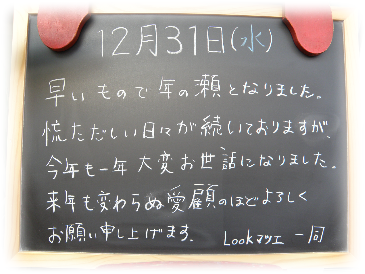 12月31日(水)
早いもので年の瀬となりました。
慌ただしい日々が続いておりますが、
今年も一年大変お世話になりました。
来年も変わらぬ愛顧のほどよろしく
お願い申し上げます。 Lookマツエ 一同